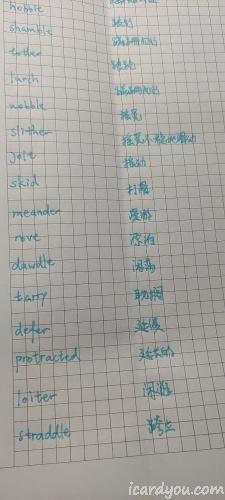 hobble
shamble
totter 蹒跚而行
lurch 蹒跚而行
wobble 摇晃
slither 摇摇不稳地滑动
jolt 摇动
skid 打滑
meander 漫游
rove 漂泊
dawdle 闲荡
tarry 耽搁
defer 延缓
protracted 延长的
loiter 闲逛
straddle 跨立
icardyou.com